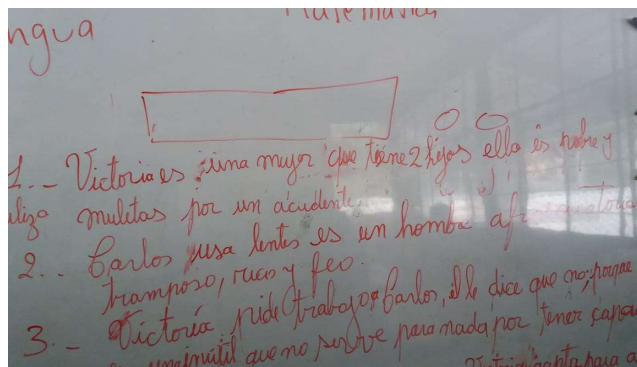 ngua Matemática
1.- Victoria es una mujer que tiene 2 hijos ella es pobre y
uliza muletas por un acidente
2.. Carlos usa lentes es un hombre
tramposo, rico y feo.
3.- Victoria pide trabajo a Carlos, el le dice que no, porque
inútil que no sirve para nada por tener capa